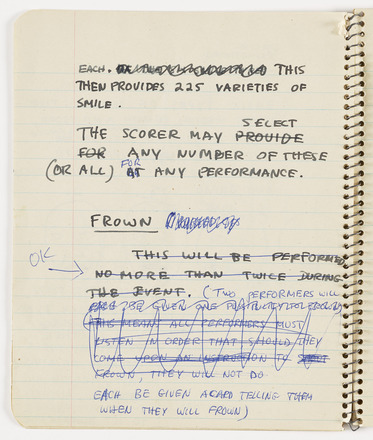 EACH. THIS
THEN PROVIDES 225 VARIETIES OF
SMILE.
SELECT
THE SCORER MAY PROVIDE
FOR ANY NUMBER OF THESE
(OR ALL) FOR AT ANY PERFORMANCE.
FROWN
OK
THIS WILL BE PERFORMED
NO MORE THAN TWICE DURING
THE EVENT. (TWO PERFORMERS WILL
EACH BE GIVEN ONE
(THIS MEANS ALL PERFORMERS MUST
LISTEN IN ORDER THAT SHOULD THEY
COME UPON AN TO
FROWN, THEY WILL NOT DO
EACH BE GIVEN A CARD TELLING THEM
WHEN THEY WILL FROWN)